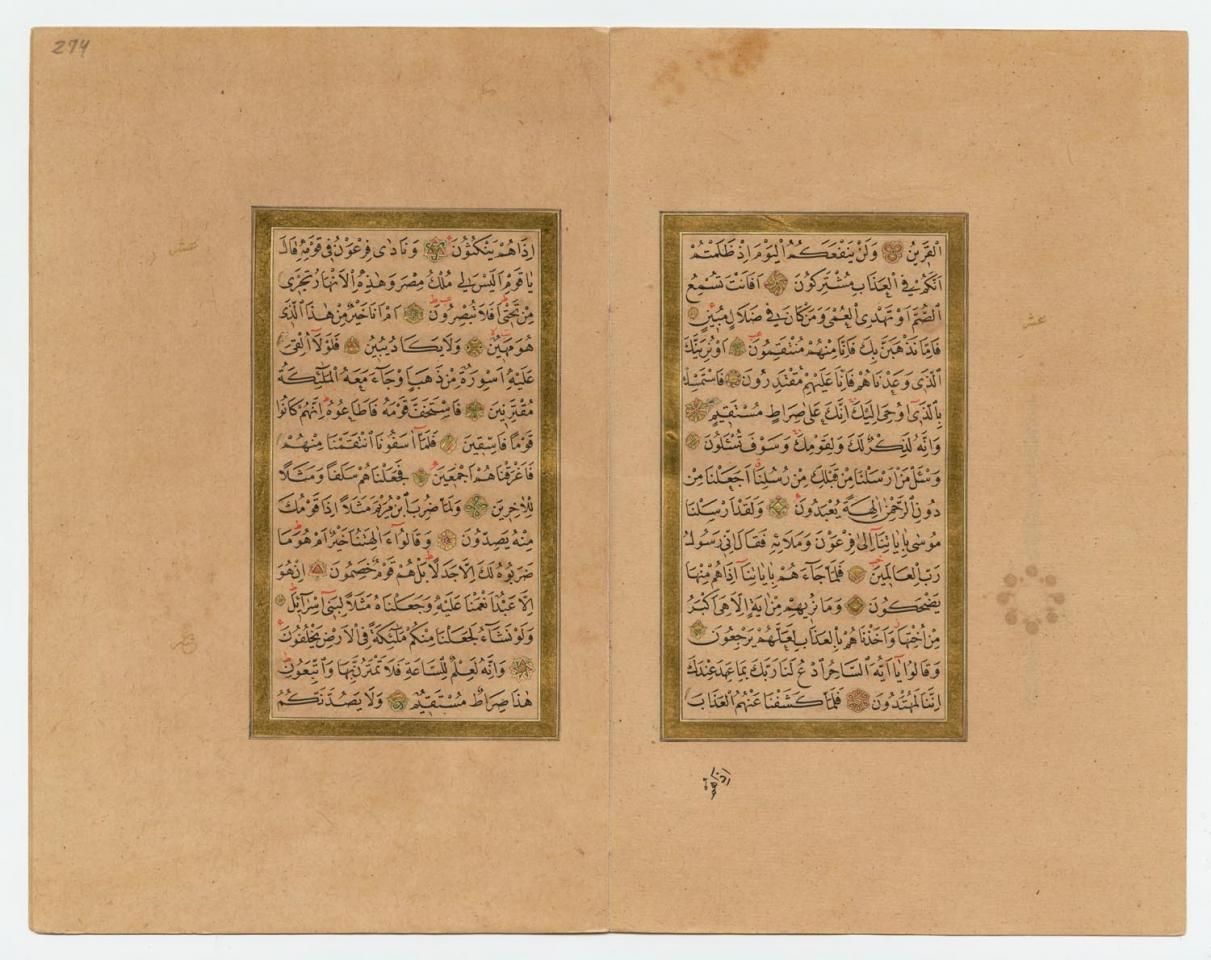 الْقَرِينُ وَلَنْ يَنْفَعَكُمُ الْيَوْمَ اِذْ ظَلَمْتُمْ
اَنَّكُمْ فِي الْعَذَابِ مُشْتَرِكُونَ اَفَاَنْتَ تُسْمِعُ
الصُّمَّ اَوْ تَهْدِى الْعُمْىَ وَمَنْ كَانَ فِي ضَلَالٍ مُبِينٍ
فَاِمَّا نَذْهَبَنَّ بِكَ فَاِنَّا مِنْهُمْ مُنْتَقِمُونَ اَوْ نُرِيَنَّكَ
الَّذِى وَعَدْنَاهُمْ فَاِنَّا عَلَيْهِمْ مُقْتَدِرُونَ فَاسْتَمْسِكْ
بِالَّذِى اُوحِىَ اِلَيْكَ اِنَّكَ عَلٰى صِرَاطٍ مُسْتَقِيمٍ
وَاِنَّهُ لَذِكْرٌ لَكَ وَلِقَوْمِكَ وَسَوْفَ تُسْئَلُونَ
وَسْئَلْ مَنْ اَرْسَلْنَا مِنْ قَبْلِكَ مِنْ رُسُلِنَا اَجَعَلْنَا مِنْ
دُونِ الرَّحْمٰنِ اٰلِهَةً يُعْبَدُونَ وَلَقَدْ اَرْسَلْنَا
مُوسٰى بِاٰيَاتِنَا اِلٰى فِرْعَوْنَ وَمَلَائِهِ فَقَالَ اِنِّى رَسُولُ
رَبِّ الْعَالَمِينَ فَلَمَّا جَاءَهُمْ بِاٰيَاتِنَا اِذَا هُمْ مِنْهَا
يَضْحَكُونَ وَمَا نُرِيهِمْ مِنْ اٰيَةٍ اِلَّا هِىَ اَكْبَرُ
مِنْ اُخْتِهَا وَاَخَذْنَاهُمْ بِالْعَذَابِ لَعَلَّهُمْ يَرْجِعُونَ
وَقَالُوا يَا اَيُّهَ السَّاحِرُ ادْعُ لَنَا رَبَّكَ بِمَا عَهِدَ عِنْدَكَ
اِنَّنَا لَمُهْتَدُونَ فَلَمَّا كَشَفْنَا عَنْهُمُ الْعَذَابَ
اِذَا هُمْ
عشر
274
اِذَا هُمْ يَنْكُثُونَ وَنَادٰى فِرْعَوْنُ فِى قَوْمِهِ قَالَ
يَا قَوْمِ اَلَيْسَ لِى مُلْكُ مِصْرَ وَهٰذِهِ الْاَنْهَارُ تَجْرِى
مِنْ تَحْتِى اَفَلَا تُبْصِرُونَ اَمْ اَنَا خَيْرٌ مِنْ هٰذَا الَّذِى
هُوَ مَهِينٌ وَلَا يَكَادُ يُبِينُ فَلَوْلَا اُلْقِىَ
عَلَيْهِ اَسْوِرَةٌ مِنْ ذَهَبٍ اَوْ جَاءَ مَعَهُ الْمَلٰئِكَةُ
مُقْتَرِنِينَ فَاسْتَخَفَّ قَوْمَهُ فَاَطَاعُوهُ اِنَّهُمْ كَانُوا
قَوْمًا فَاسِقِينَ فَلَمَّا اٰسَفُونَا انْتَقَمْنَا مِنْهُمْ
فَاَغْرَقْنَاهُمْ اَجْمَعِينَ فَجَعَلْنَاهُمْ سَلَفًا وَمَثَلًا
لِلْاٰخِرِينَ وَلَمَّا ضُرِبَ ابْنُ مَرْيَمَ مَثَلًا اِذَا قَوْمُكَ
مِنْهُ يَصِدُّونَ وَقَالُوا ءَاٰلِهَتُنَا خَيْرٌ اَمْ هُوَ مَا
ضَرَبُوهُ لَكَ اِلَّا جَدَلًا بَلْ هُمْ قَوْمٌ خَصِمُونَ اِنْ هُوَ
اِلَّا عَبْدٌ اَنْعَمْنَا عَلَيْهِ وَجَعَلْنَاهُ مَثَلًا لِبَنِى اِسْرَائِلَ
وَلَوْ نَشَاءُ لَجَعَلْنَا مِنْكُمْ مَلٰئِكَةً فِى الْاَرْضِ يَخْلُفُونَ
وَاِنَّهُ لَعِلْمٌ لِلسَّاعَةِ فَلَا تَمْتَرُنَّ بِهَا وَاتَّبِعُونِ
هٰذَا صِرَاطٌ مُسْتَقِيمٌ وَلَا يَصُدَّنَّكُمُ
عشر